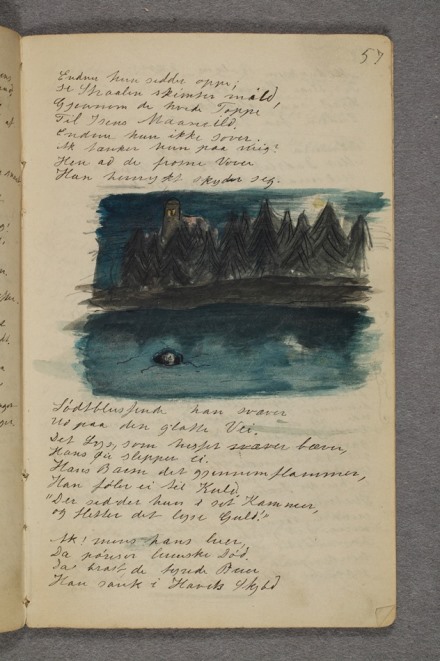 57
Endnu hun sidder oppe;
Se Straalen skimter mild,
Gjennem de hvide Toppe
Til Isens
Endnu hun ikke sover.
Ak tænker hun paa mig!
Hen ad de frosne Vover
Han henrykt skyder sig.
Sødtblussende han svæver
Ud paa den glatte Vei.
Det Lys, som hist svæver bæver,
Hans Øie slipper ei.
Hans Barm det gjennemflammer,
Han føler ei til Kuld.
"Der sidder hun i sit Kammer,
og fletter det lyse Guld!"
Ak! mens hans leer,
Da lumske Død.
Da brast de Buer
Han sank i Havets Skjød